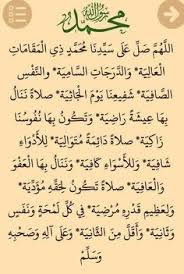 رسول الله
محمد
اللَّهُمَّ صَلِّ عَلَى سَيِّدِنَا مُحَمَّدٍ ذِي الْمَقَامَاتِ
الْعَالِيَة* وَالدَّرَجَاتِ السَّامِيَة* وَالنَّفْسِ
الصَّافِيَة* شَفِيعِنَا يَوْمَ الْجَاثِيَة* صَلاةً نَنَالُ
بِهَا عِيشَةً رَاضِيَة* وَتَكُونُ بِهَا نُفُوسُنَا
زَاكِيَة* صَلاةً دَائِمَةً مُتَوَالِيَة* لِلأَدْوَاءِ
شَافِيَة* وَلِلأَسْوَاءِ كَافِيَة* وَنَنَالُ بِهَا الْعَفْوَ
وَالْعَافِيَة* صَلاةً تَكُونُ لِحَقِّهِ مُؤَدِّيَة*
وَلِعَظِيمِ قَدْرِهِ مُرْضِيَة* فِي كُلِّ لَمْحَةٍ وَنَفَسٍ
وَثَانِيَة* وَأَقَلَّ مِنَ الثَّانِيَة* وَعَلَى آلِهِ وَصَحْبِهِ
وَسَلِّمْ